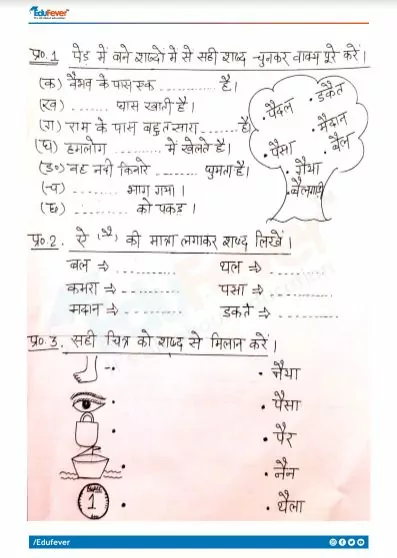 Edufever
प्र०.1 पेड़ में बने शब्दो में से सही शब्द चुनकर वाक्य पूरे करें।
(क) वैभव के पास एक ............ है।
(ख) ........ घास खाती है।
(ग) राम के पास बहुत सारा ....... है।
(घ) हमलोग ......... में खेलते है।
(ङ०) वह नदी किनारे ........ घुमता है।
(च) ......... भाग गया।
(छ) ......... को पकड़।
पैदल
डकैत
मैदान
पैसा
बैल
गैया
बैलगाड़ी
प्र०2. ऐ (ै) की मात्रा लगाकर शब्द लिखें।
बल ⇒ .......... थल ⇒ ..........
कमरा ⇒ .......... पसा ⇒ ..........
मदान ⇒ .......... डकत ⇒ ..........
प्र०.3. सही चित्र को शब्द से मिलान करें।
नैया
पैसा
पैर
नैन
थैला
1
/Edufever